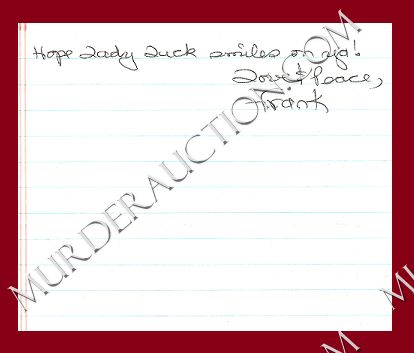 Hope Lady Luck smiles on ya!
Love & Peace,
Frank
MURDERAUCTION.COM